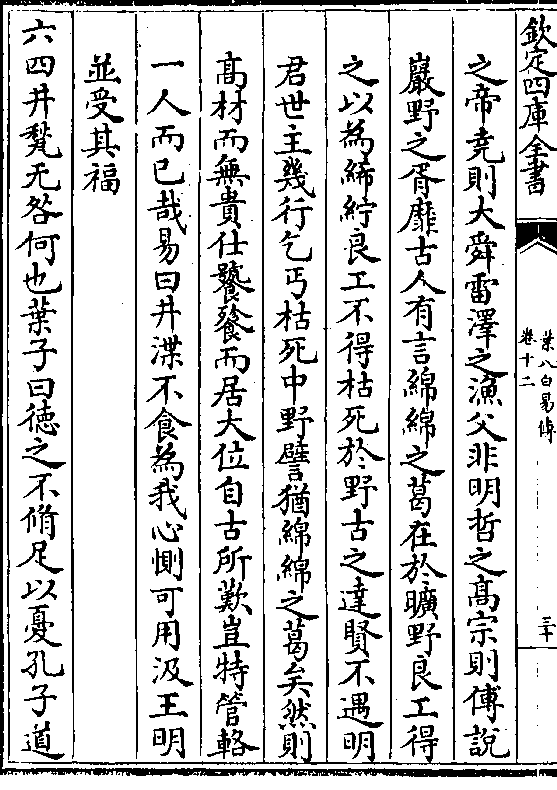 欽定四庫全書
葉八白易傳
卷十二
三十
之帝堯則大舜雷澤之漁父非明哲之髙宗則傅說
巖野之胥靡古人有言綿綿之葛在於曠野良工得
之以為絺紵良工不得枯死於野古之達賢不遇明
君世主幾行乞丐枯死中野譬猶綿綿之葛矣然則
髙材而無貴仕饕餮而居大位自古所歎豈特管輅
一人而已哉易曰井渫不食為我心惻可用汲王明
並受其福
六四井甃无咎何也葉子曰徳之不脩足以憂孔子道